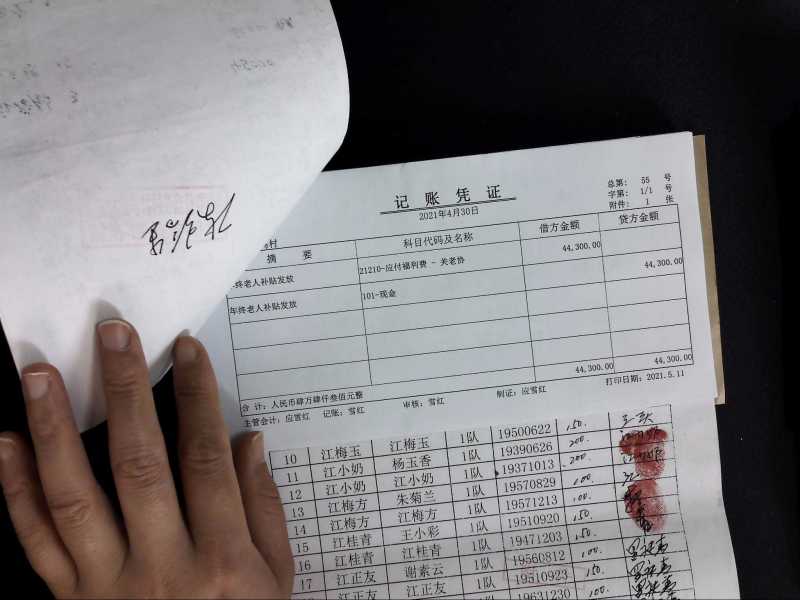 记账凭证
2021年4月30日
总第： 55 号
字第： 1/1 号
附件： 1 张
村
摘 要 科目代码及名称 借方金额 贷方金额
年终老人补贴发放 21210-应付福利费 - 关老协 44,300.00
年终老人补贴发放 101-现金 44,300.00
合 计：人民币肆万肆仟叁佰元整 44,300.00 44,300.00
主管会计：应雪红 记账：雪红 审核：雪红 制证：应雪红 打印日期：2021.5.11
10 江梅玉 江梅玉 1队 19500622 150.
11 江小奶 杨玉香 1队 19390626 200.
12 江小奶 江小奶 1队 19371013 200.
13 江梅方 朱菊兰 1队 19570829 100.
14 江梅方 江梅方 1队 19571213 100.
15 江桂青 王小彩 1队 19510920 150.
16 江桂青 江桂青 1队 19471203 150.
17 江正友 谢素云 1队 19560812 100.
江正友 江正友 1队 19510923 150.
19631230 100.